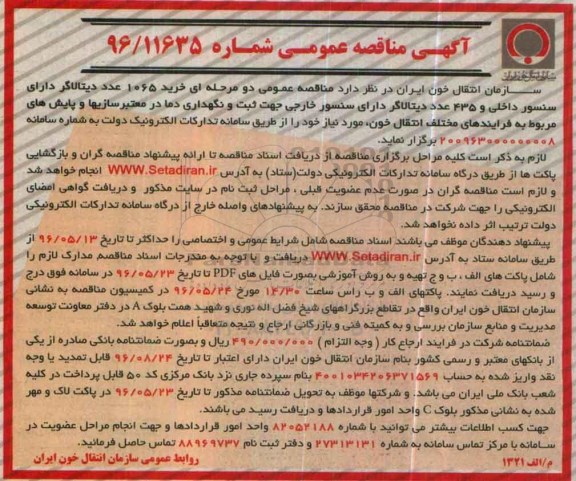 آگهی مناقصه عمومی شماره ۹۶/۱۱۶۳۵
سازمان انتقال خون ایران در نظر دارد مناقصه عمومی دو مرحله ای خرید ۱۰۶۵ عدد دیتالاگر دارای
سنسور داخلی و ۴۳۵ عدد دیتالاگر دارای سنسور خارجی جهت ثبت و نگهداری دما در معتبرسازیها و پایش های
مربوط به فرایندهای مختلف انتقال خون، مورد نیاز خود را از طریق سامانه تدارکات الکترونیک دولت به شماره سامانه
۲۰۰۹۶۳۰۰۰۰۰۰۰۰۸ برگزار نماید.
لازم به ذکر است کلیه مراحل برگزاری مناقصه از دریافت اسناد مناقصه تا ارائه پیشنهاد مناقصه گران و بازگشایی
پاکت ها از طریق درگاه سامانه تدارکات الکترونیکی دولت(ستاد) به آدرس WWW.Setadiran.ir انجام خواهد شد
و لازم است مناقصه گران در صورت عدم عضویت قبلی ، مراحل ثبت نام در سایت مذکور و دریافت گواهی امضای
الکترونیکی را جهت شرکت در مناقصه محقق سازند. به پیشنهادهای واصله خارج از درگاه سامانه تدارکات الکترونیکی
دولت ترتیب اثر داده نخواهد شد.
پیشنهاد دهندگان موظف می باشند اسناد مناقصه شامل شرایط عمومی و اختصاصی را حداکثر تا تاریخ ۹۶/۰۵/۱۳ از
طریق سامانه ستاد به آدرس WWW.Setadiran.ir دریافت و با توجه به مندرجات اسناد مناقصه مدارک لازم را
شامل پاکت های الف ، ب و ج تهیه و به روش آموزشی بصورت فایل های PDF تا تاریخ ۹۶/۰۵/۲۳ در سامانه فوق درج
و رسید دریافت نمایند. پاکتهای الف و ب راس ساعت ۱۴/۳۰ مورخ ۹۶/۰۵/۲۴ در کمیسیون مناقصه به نشانی
سازمان انتقال خون ایران واقع در تقاطع بزرگراههای شیخ فضل اله نوری و شهید همت بلوک A در دفتر معاونت توسعه
مدیریت و منابع سازمان بررسی و به کمیته فنی و بازرگانی ارجاع و نتیجه متعاقباً اعلام خواهد شد.
ضمانتنامه شرکت در فرایند ارجاع کار ( وجه التزام ) ۴۹۰/۰۰۰/۰۰۰ ریال و بصورت ضمانتنامه بانکی صادره از یکی
از بانکهای معتبر و رسمی کشور بنام سازمان انتقال خون ایران دارای اعتبار تا تاریخ ۹۶/۰۸/۲۴ قابل تمدید یا وجه
نقد واریز شده به حساب ۴۰۰۱۰۳۴۲۰۶۳۷۱۵۶۹ بنام سپرده جاری نزد بانک مرکزی کد ۵۰ قابل پرداخت در کلیه
شعب بانک ملی ایران می باشد. و شرکتها موظف به تحویل ضمانتنامه مذکور تا تاریخ ۹۶/۰۵/۲۳ در پاکت لاک و مهر
شده به نشانی مذکور بلوک C واحد امور قراردادها و دریافت رسید می باشند.
جهت کسب اطلاعات بیشتر می توانید با شماره ۸۲۰۵۲۱۸۸ واحد امور قراردادها و جهت انجام مراحل عضویت در
سامانه با مرکز تماس سامانه به شماره ۲۷۳۱۳۱۳۱ و دفتر ثبت نام ۸۸۹۶۹۷۳۷ تماس حاصل فرمائید.
م/الف ۱۳۲۱
روابط عمومی سازمان انتقال خون ایران